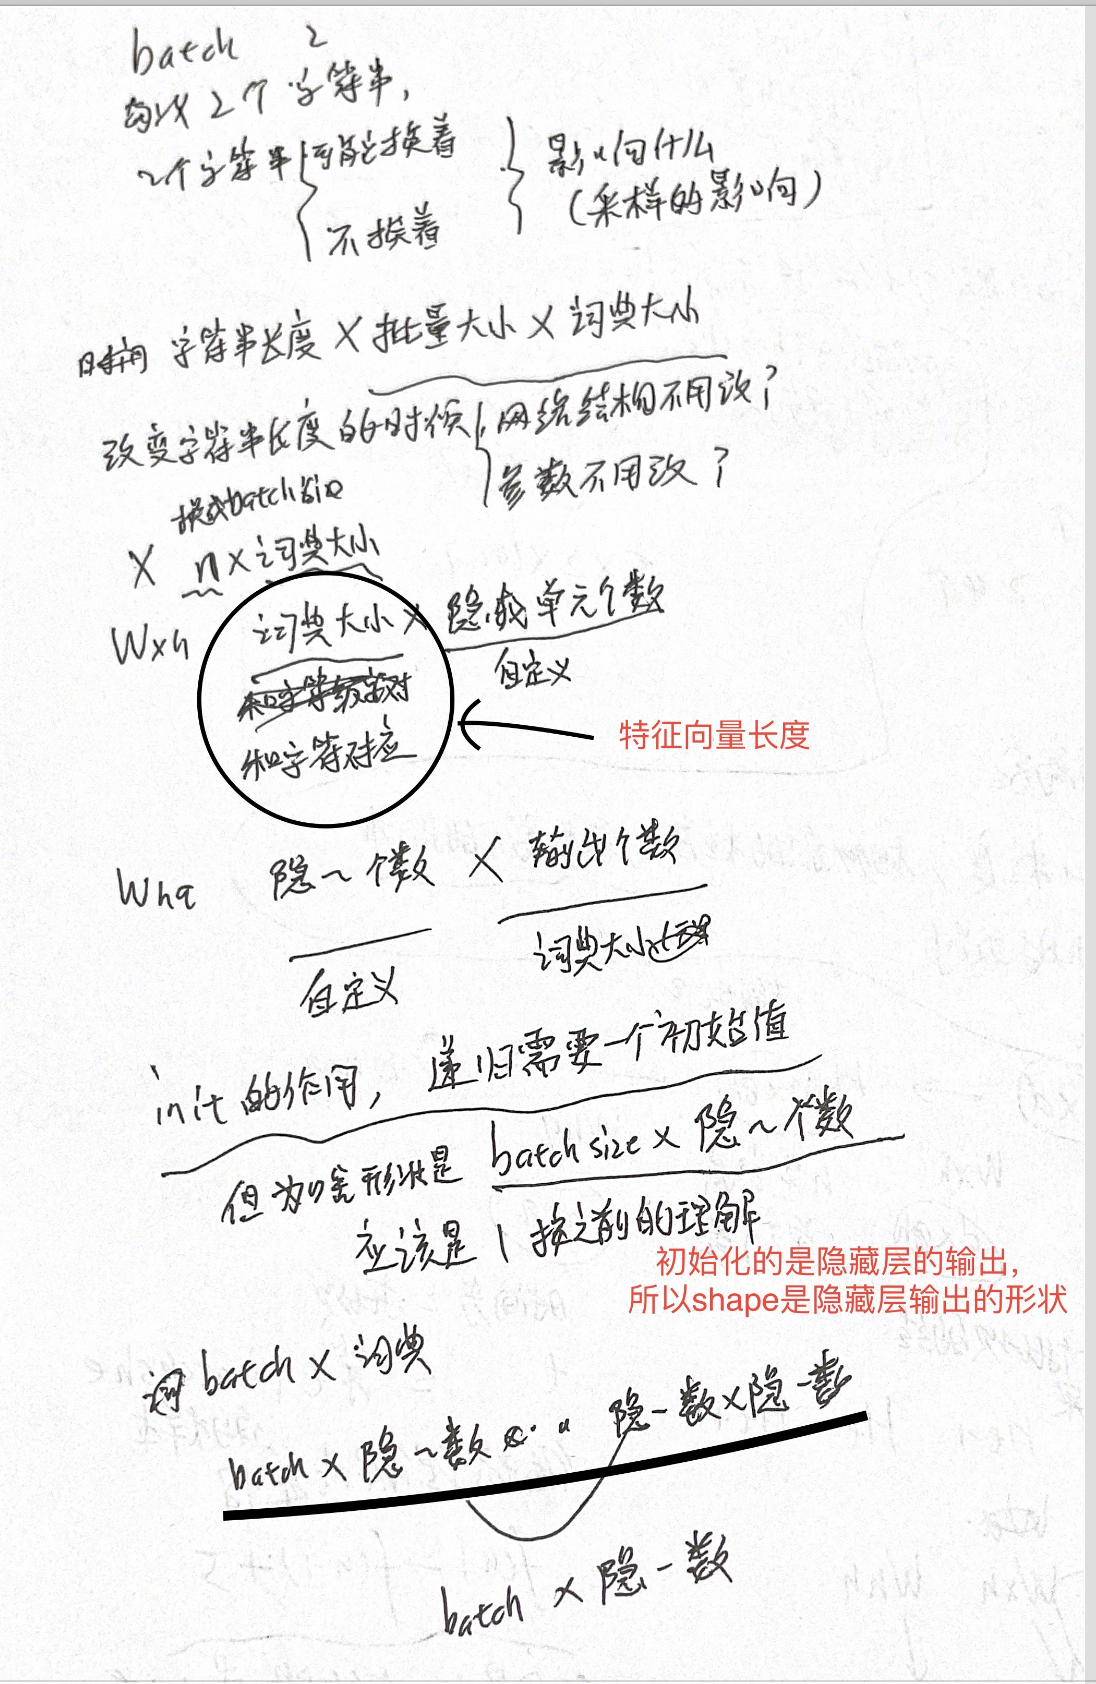 batch 2
每次2个字符串,
2个字符串 可能挨着
不挨着
影响什么
(采样的影响)
时间 字符串长度 × 批量大小 × 词典大小
改变字符串长度的时候 网络结构不用改?
参数不用改?
换成batch size
X n × 词典大小
Wxh 词典大小 × 隐藏单元个数
自定义
和字符对应
特征向量长度
Whq 隐~个数 × 输出个数
自定义
词典大小
init的作用, 递归需要一个初始值
但为啥形状是 batch size × 隐~个数
应该是1 按之前的理解
初始化的是隐藏层的输出,
所以shape是隐藏层输出的形状
batch × 词典
batch × 隐~数 隐~数×隐~数
batch × 隐~数